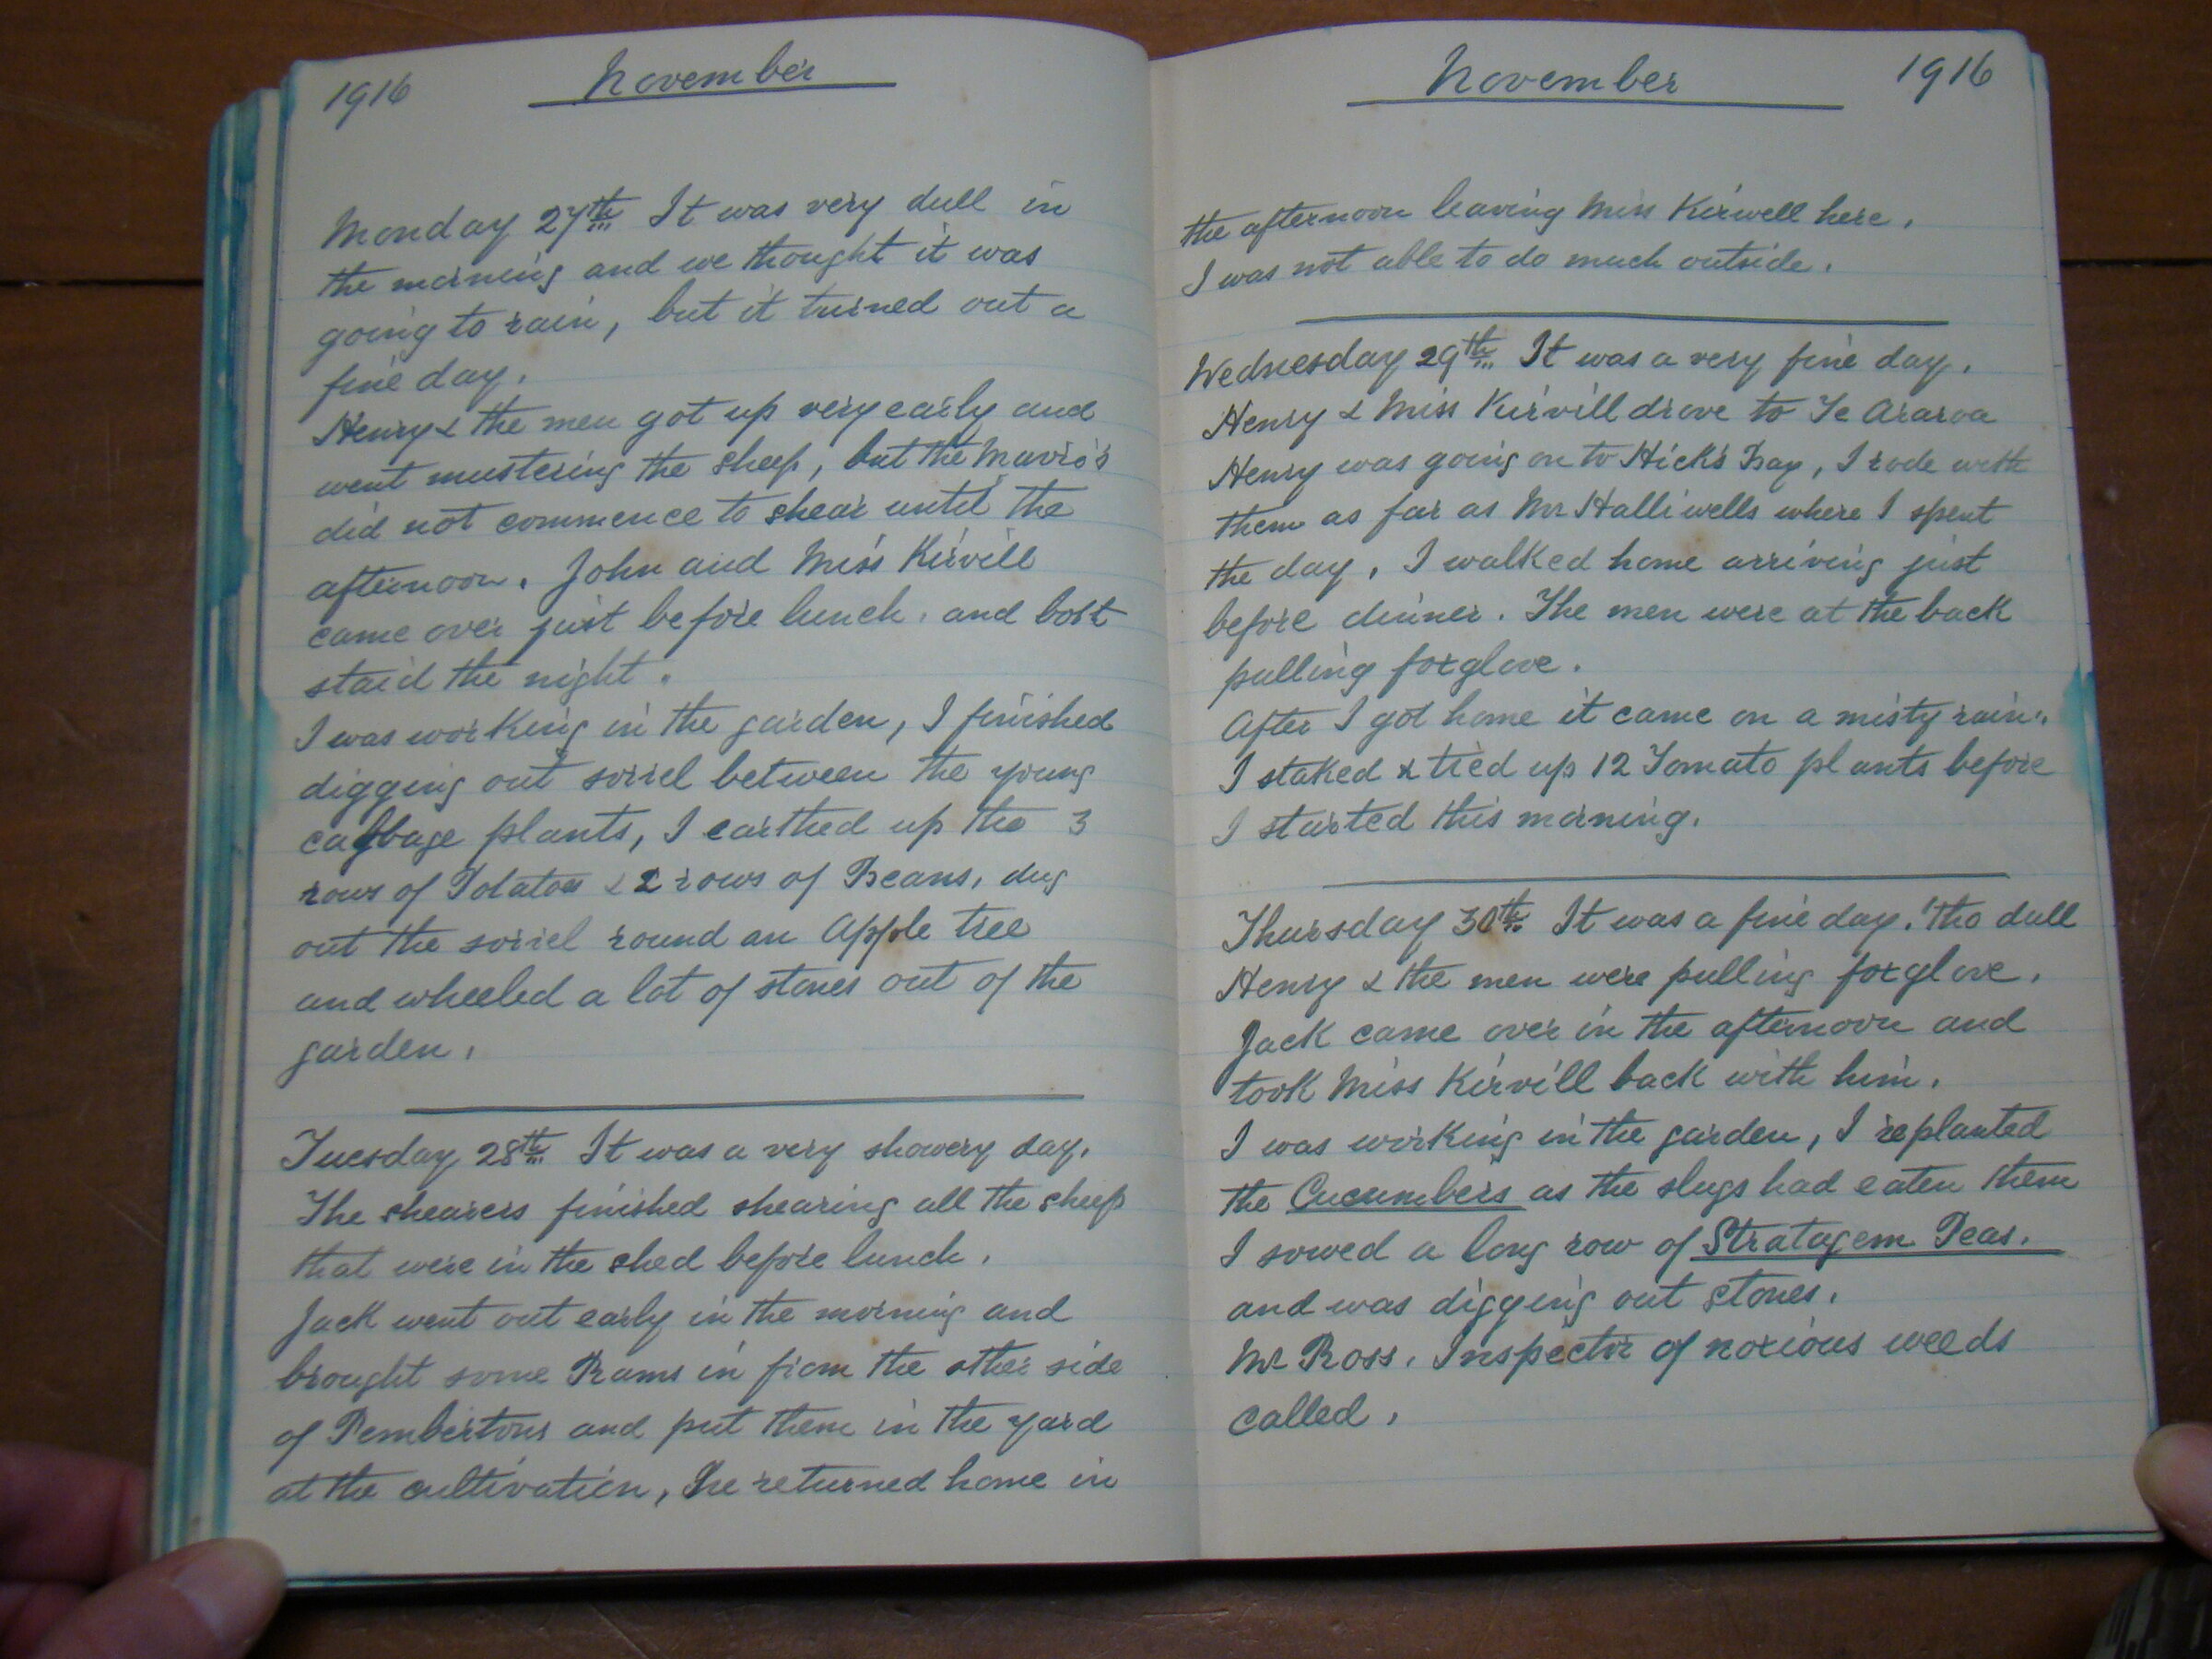 1916 November
Monday 27th It was very dull in
the morning and we thought it was
going to rain, but it turned out a
fine day.
Henry & the men got up very early and
went mustering the sheep, but the Maorio's
did not commence to shear until the
afternoon. John and Miss Kirvill
came over just before lunch, and both
staid the night.
I was working in the garden, I finished
digging out sorrel between the young
cabbage plants, I earthed up the 3
rows of Potatoes & 2 rows of Beans, dug
out the sorrel round an Apple tree
and wheeled a lot of stones out of the
garden.
Tuesday 28th It was a very showery day.
The shearers finished shearing all the sheep
that were in the shed before lunch.
Jack went out early in the morning and
brought some Rams in from the other side
of Pembertons and put them in the yard
at the cultivation, he returned home in
November 1916
the afternoon leaving Miss Kirwell here.
I was not able to do much outside.
Wednesday 29th It was a very fine day.
Henry & Miss Kirvill drove to Te Araroa
Henry was going on to Hick's Bay, I rode with
them as far as Mr Halliwells where I spent
the day, I walked home arriving just
before dinner. The men were at the back
pulling foxglove.
After I got home it came on a misty rain.
I staked & tied up 12 Tomato plants before
I started this morning.
Thursday 30th It was a fine day. 'tho dull
Henry & the men were pulling foxglove.
Jack came over in the afternoon and
took Miss Kirvill back with him.
I was working in the garden, I replanted
the Cucumbers as the slugs had eaten them
I sowed a long row of Stratagem Peas.
and was digging out stones.
Mr Ross. Inspector of noxious weeds
called.